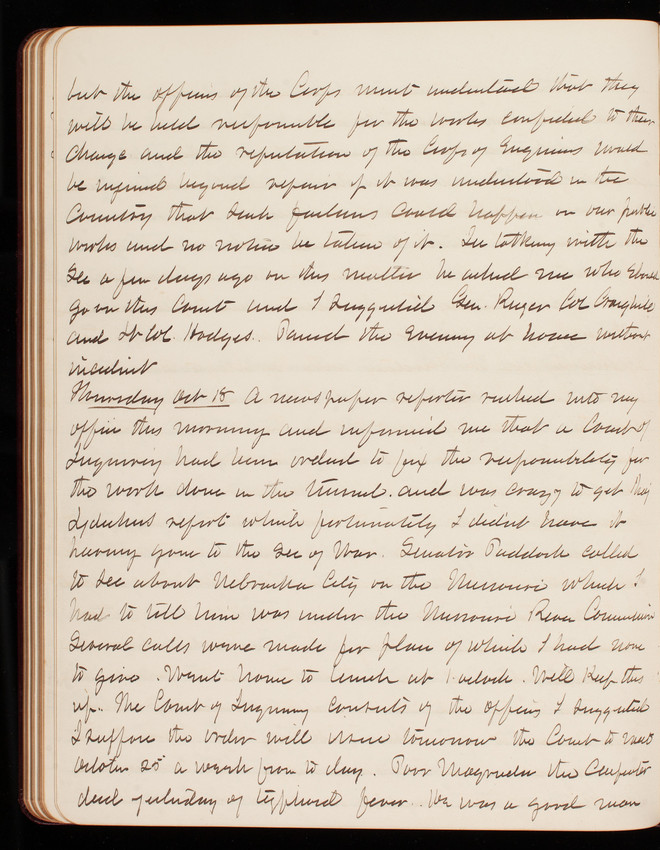 but the officers of the Corps must understand that they
will be held responsible for the works confided to their
charge and the reputation of the Corps of Engineers would
be injured beyond repair if it was understood in the
Country that such failures could happen on our public
works and no notice be taken of it. In talking with the
Sec a few days ago on this matter he asked me who should
go on this Court and I suggested Gen. Ruger Col Craighill
and Lt Col. Hodges. Passed the Evening at home without
incident
Thursday Oct 18 A newspaper reporter rushed into my
office this morning and informed me that a Court of
Inquiry had been ordered to fix the responsibility for
the work done in the tunnel. and was crazy to get Maj
Lydecker's report which fortunately I didn't have it
having gone to the Sec of War. Senator Paddock called
to see about Nebraska City on the Missouri which I
had to tell him was under the Missouri River Commission
Several calls were made for plan of which I had none
to give. Went home to lunch at 1 oclock. Will keep this
up. The Court of Inquiry consists of the officers I suggested
I suppose the order will issue tomorrow the Court to meet
October 25 a week from to day. Poor Magruder the Carpenter
died yesterday of typhoid fever. He was a good man